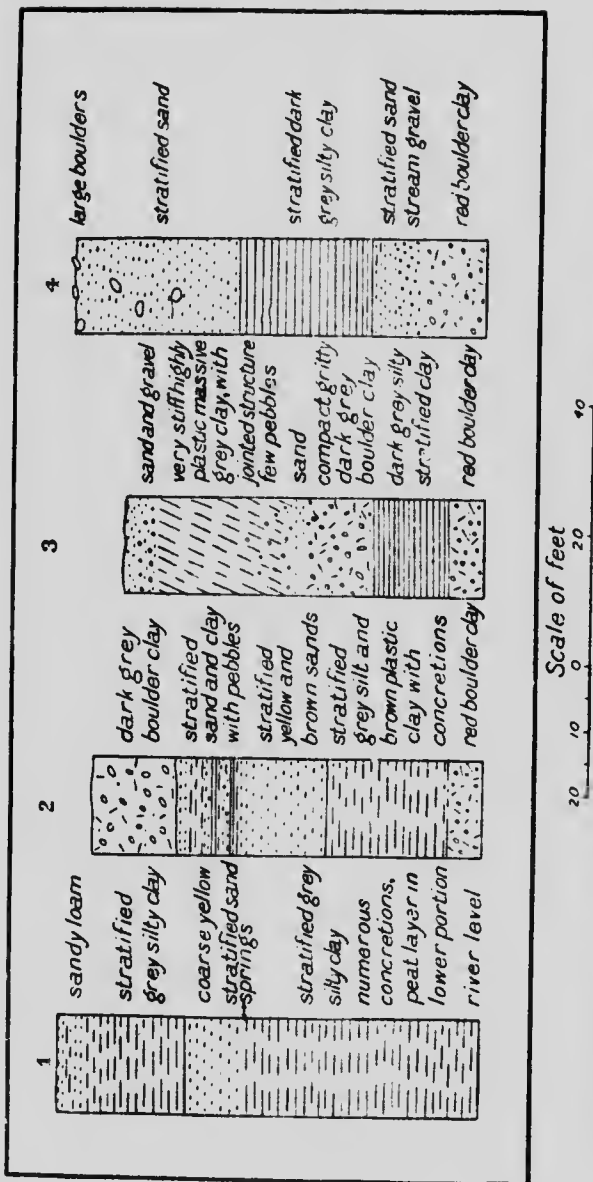 1
sandy loam
stratified
grey silty clay
coarse yellow
stratified sand
springs
stratified grey
silty clay
numerous
concretions,
peat layer in
lower portion
river level
2
dark grey
boulder clay
stratified
sand and clay
with pebbles
stratified
yellow and
brown sands
stratified
grey silt and
brown plastic
clay with
concretions
red boulder clay
3
sand and gravel
very stiff highly
plastic massive
grey clay, with
jointed structure
few pebbles
sand
compact gritty
dark grey
boulder clay
dark grey silty
stratified clay
red boulder clay
4
large boulders
stratified sand
stratified dark
grey silty clay
stratified sand
stream gravel
red boulder clay
Scale of feet
20 10 0 20 40